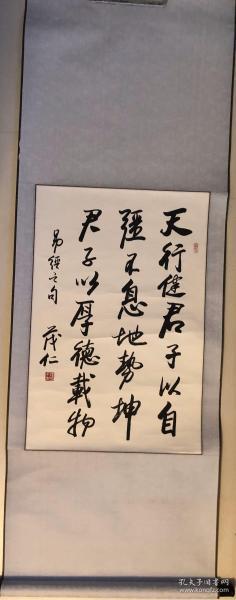 天行健君子以自
彊不息地勢坤
君子以厚德載物
易經之句
茂仁
孔夫子旧书网
www.kongfz.com